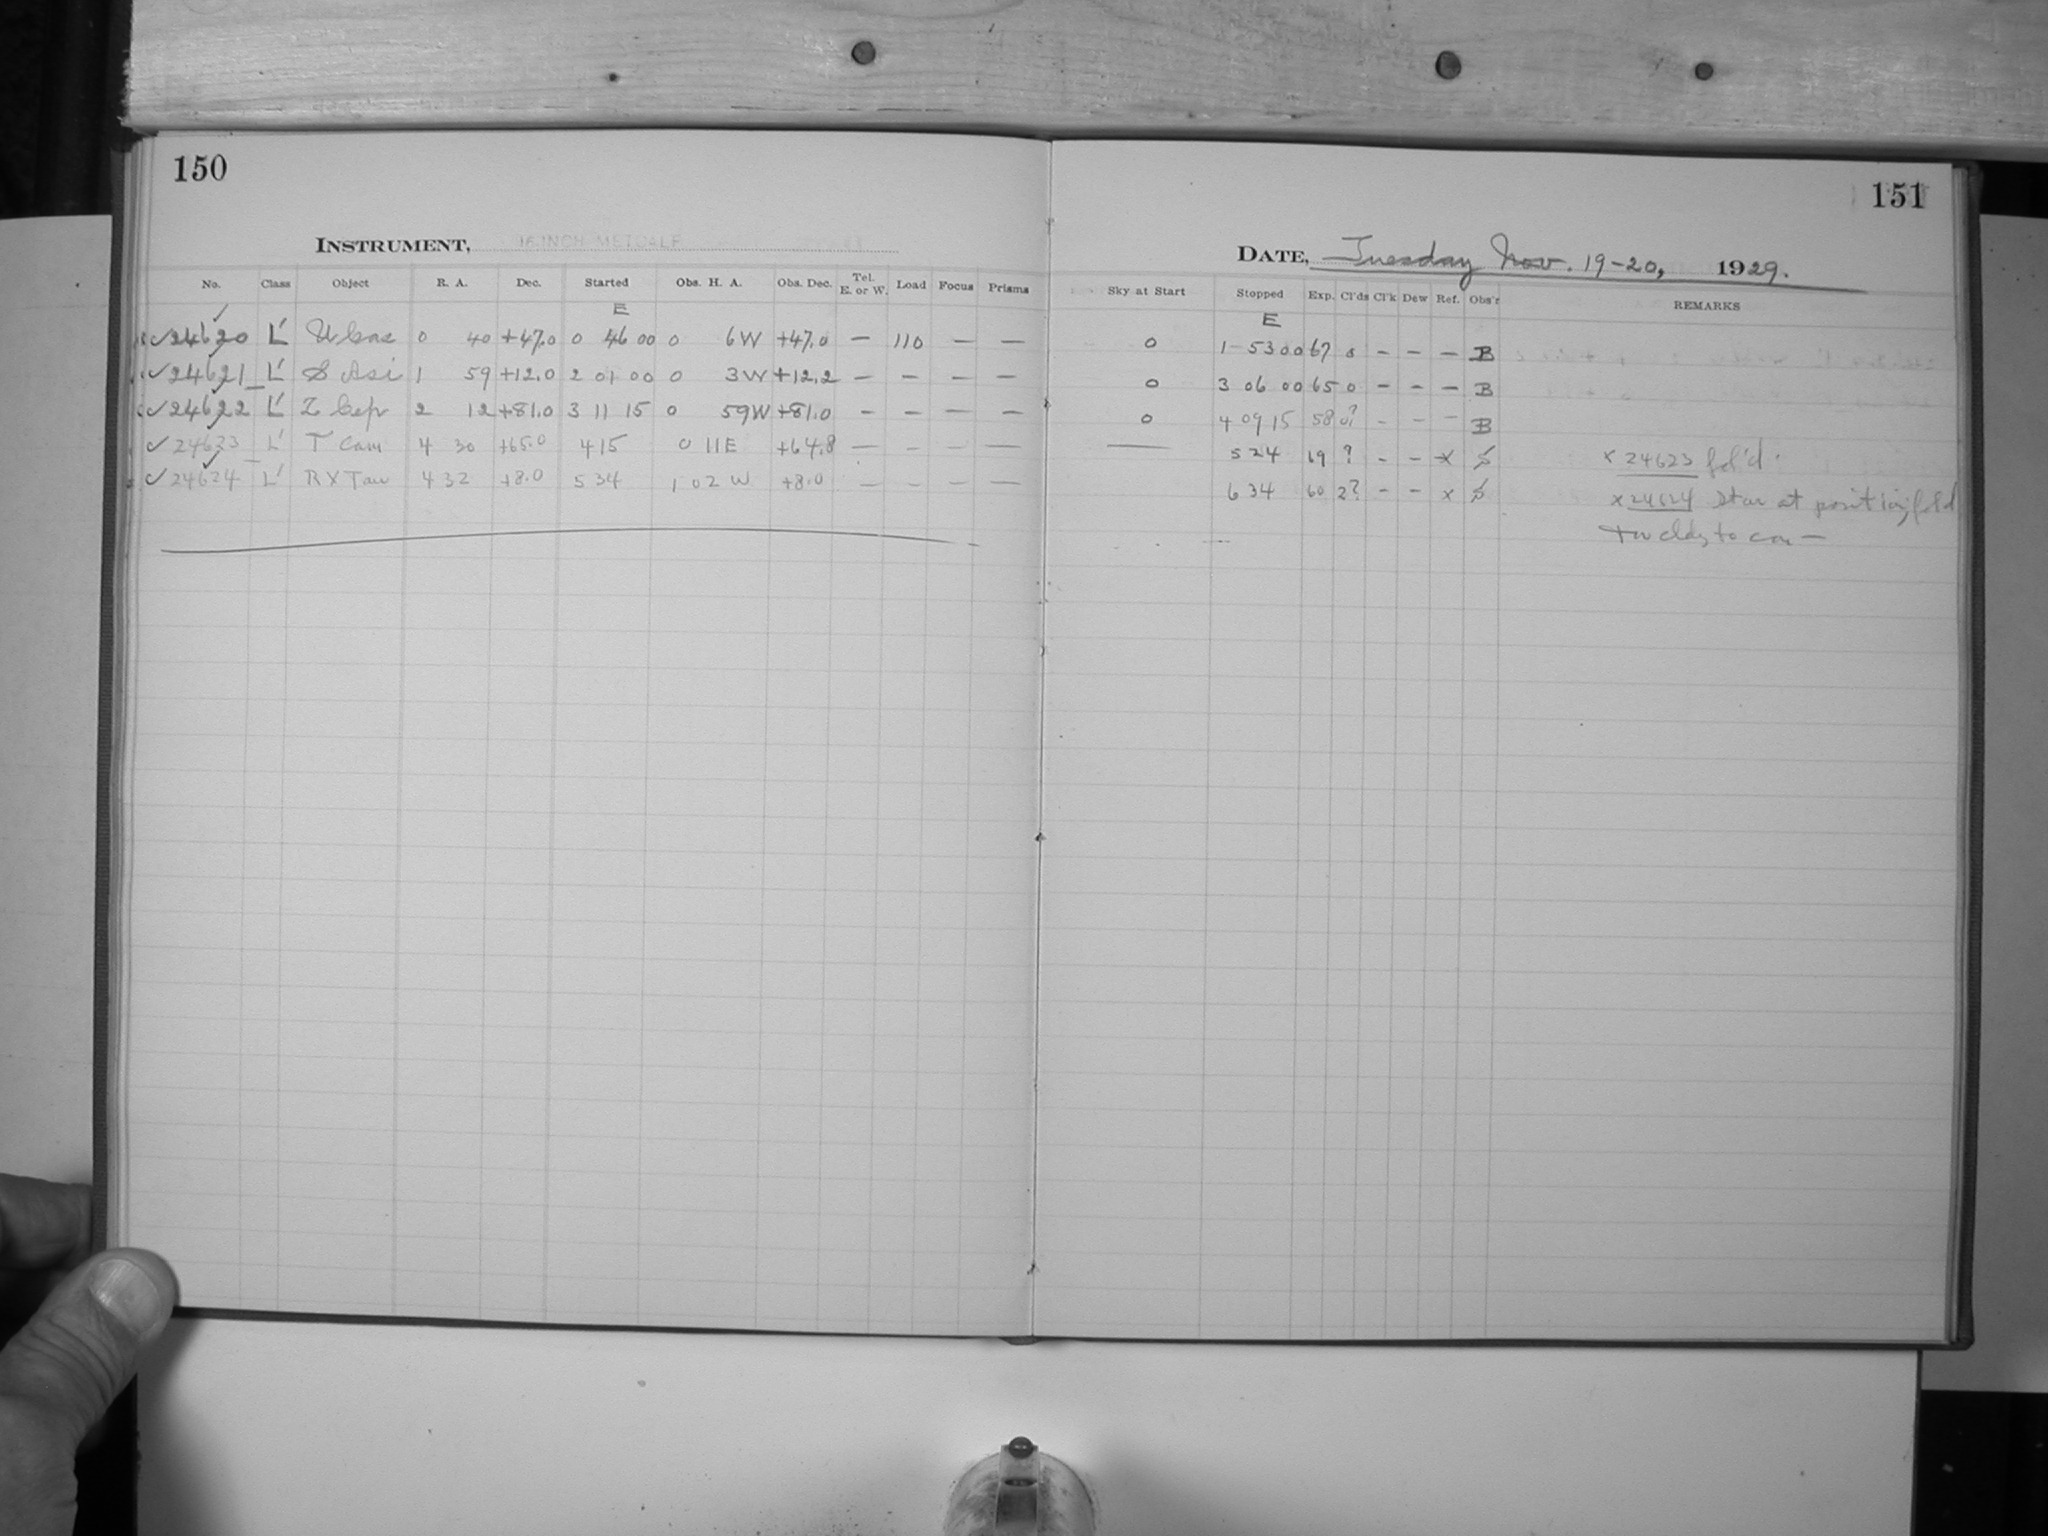 150
INSTRUMENT, 16 INCH METCALF
No. Class Object R. A. Dec. Started Obs. H. A. Obs. Dec. Tel. E. or W. Load Focus Prisms
E
✓24620 L' U Cas 0 40 +47.0 0 46 00 0 6W +47.0 — 110 — —
✓24621 L' S Ari 1 59 +12.0 2 01 00 0 3W +12.2 — — — —
✓24622 L' Z Cep 2 12 +81.0 3 11 15 0 59W +81.0 — — — —
✓24623 L' T Cam 4 30 +65.0 4 15 0 11E +64.8 — — — —
✓24624 L' RX Tau 4 32 +8.0 5 34 1 02 W +8.0 — — — —
151
DATE, Tuesday Nov. 19-20, 1929.
Sky at Start Stopped Exp. Cl'ds Cl'k Dew Ref. Obs'r REMARKS
E
0 1 53 00 67 0 — — — B
0 3 06 00 65 0 — — — B
0 4 09 15 58 0? — — — B
— 5 24 69 ? — — x x 24623 fol'd.
6 34 60 2? — — x x 24624 Star at position; fol'd
too cldy to con —